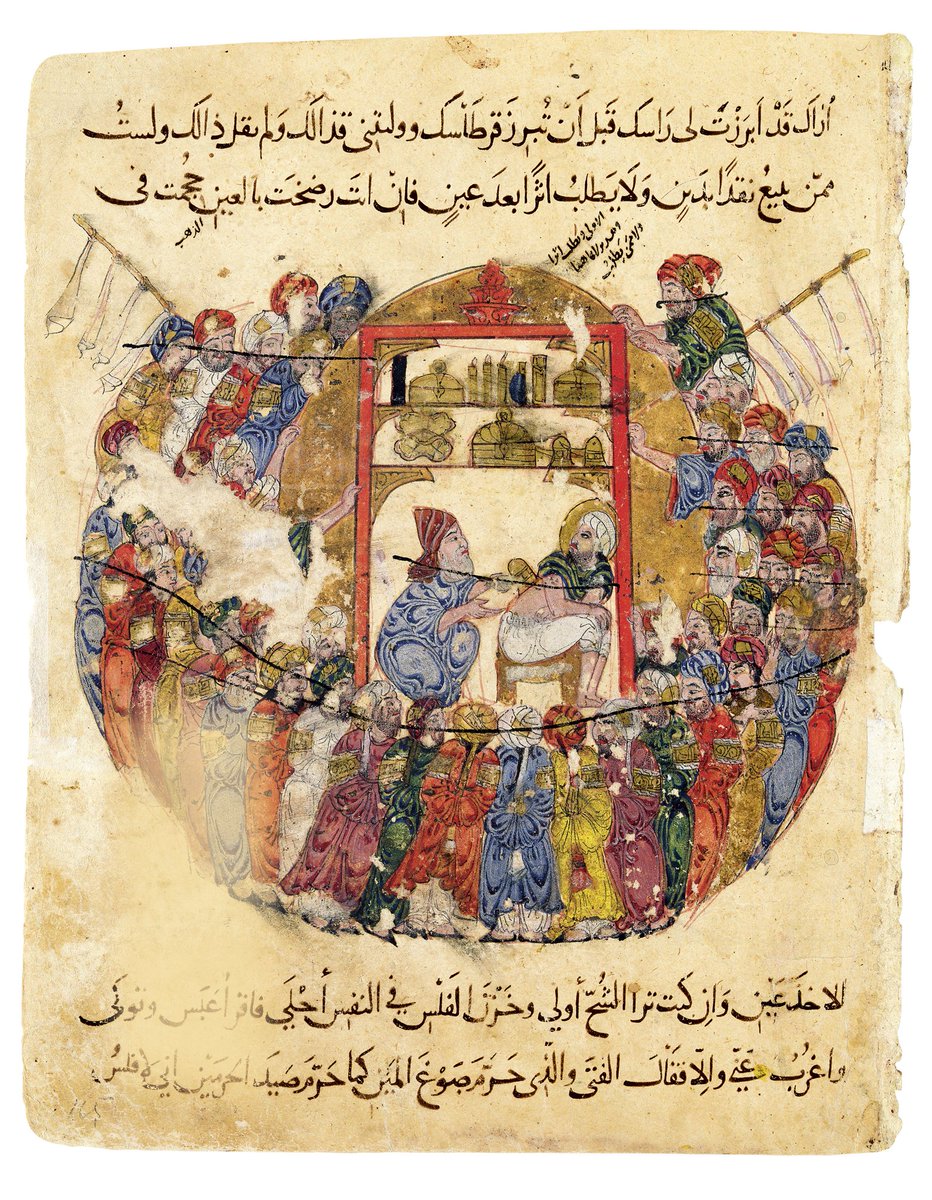 أراك قد أبرزت لي راسك قبل أن تبرز قرطاسك ووليتني قذالك ولم تقل ذالك ولست
ممن يبيع نقدا بدين ولا يطلب اثرا بعد عين فان انت رضخت بالعين حجمت في
الذهب
الاخدعين وان كنت ترا الشح أولي وخزن الفلس في النفس أحلي فاقرأ عبس وتولى
واغرب عني والا فقال الفتى والذي حرم صوغ المين كما حرم صيد الحرمين اني لافلس